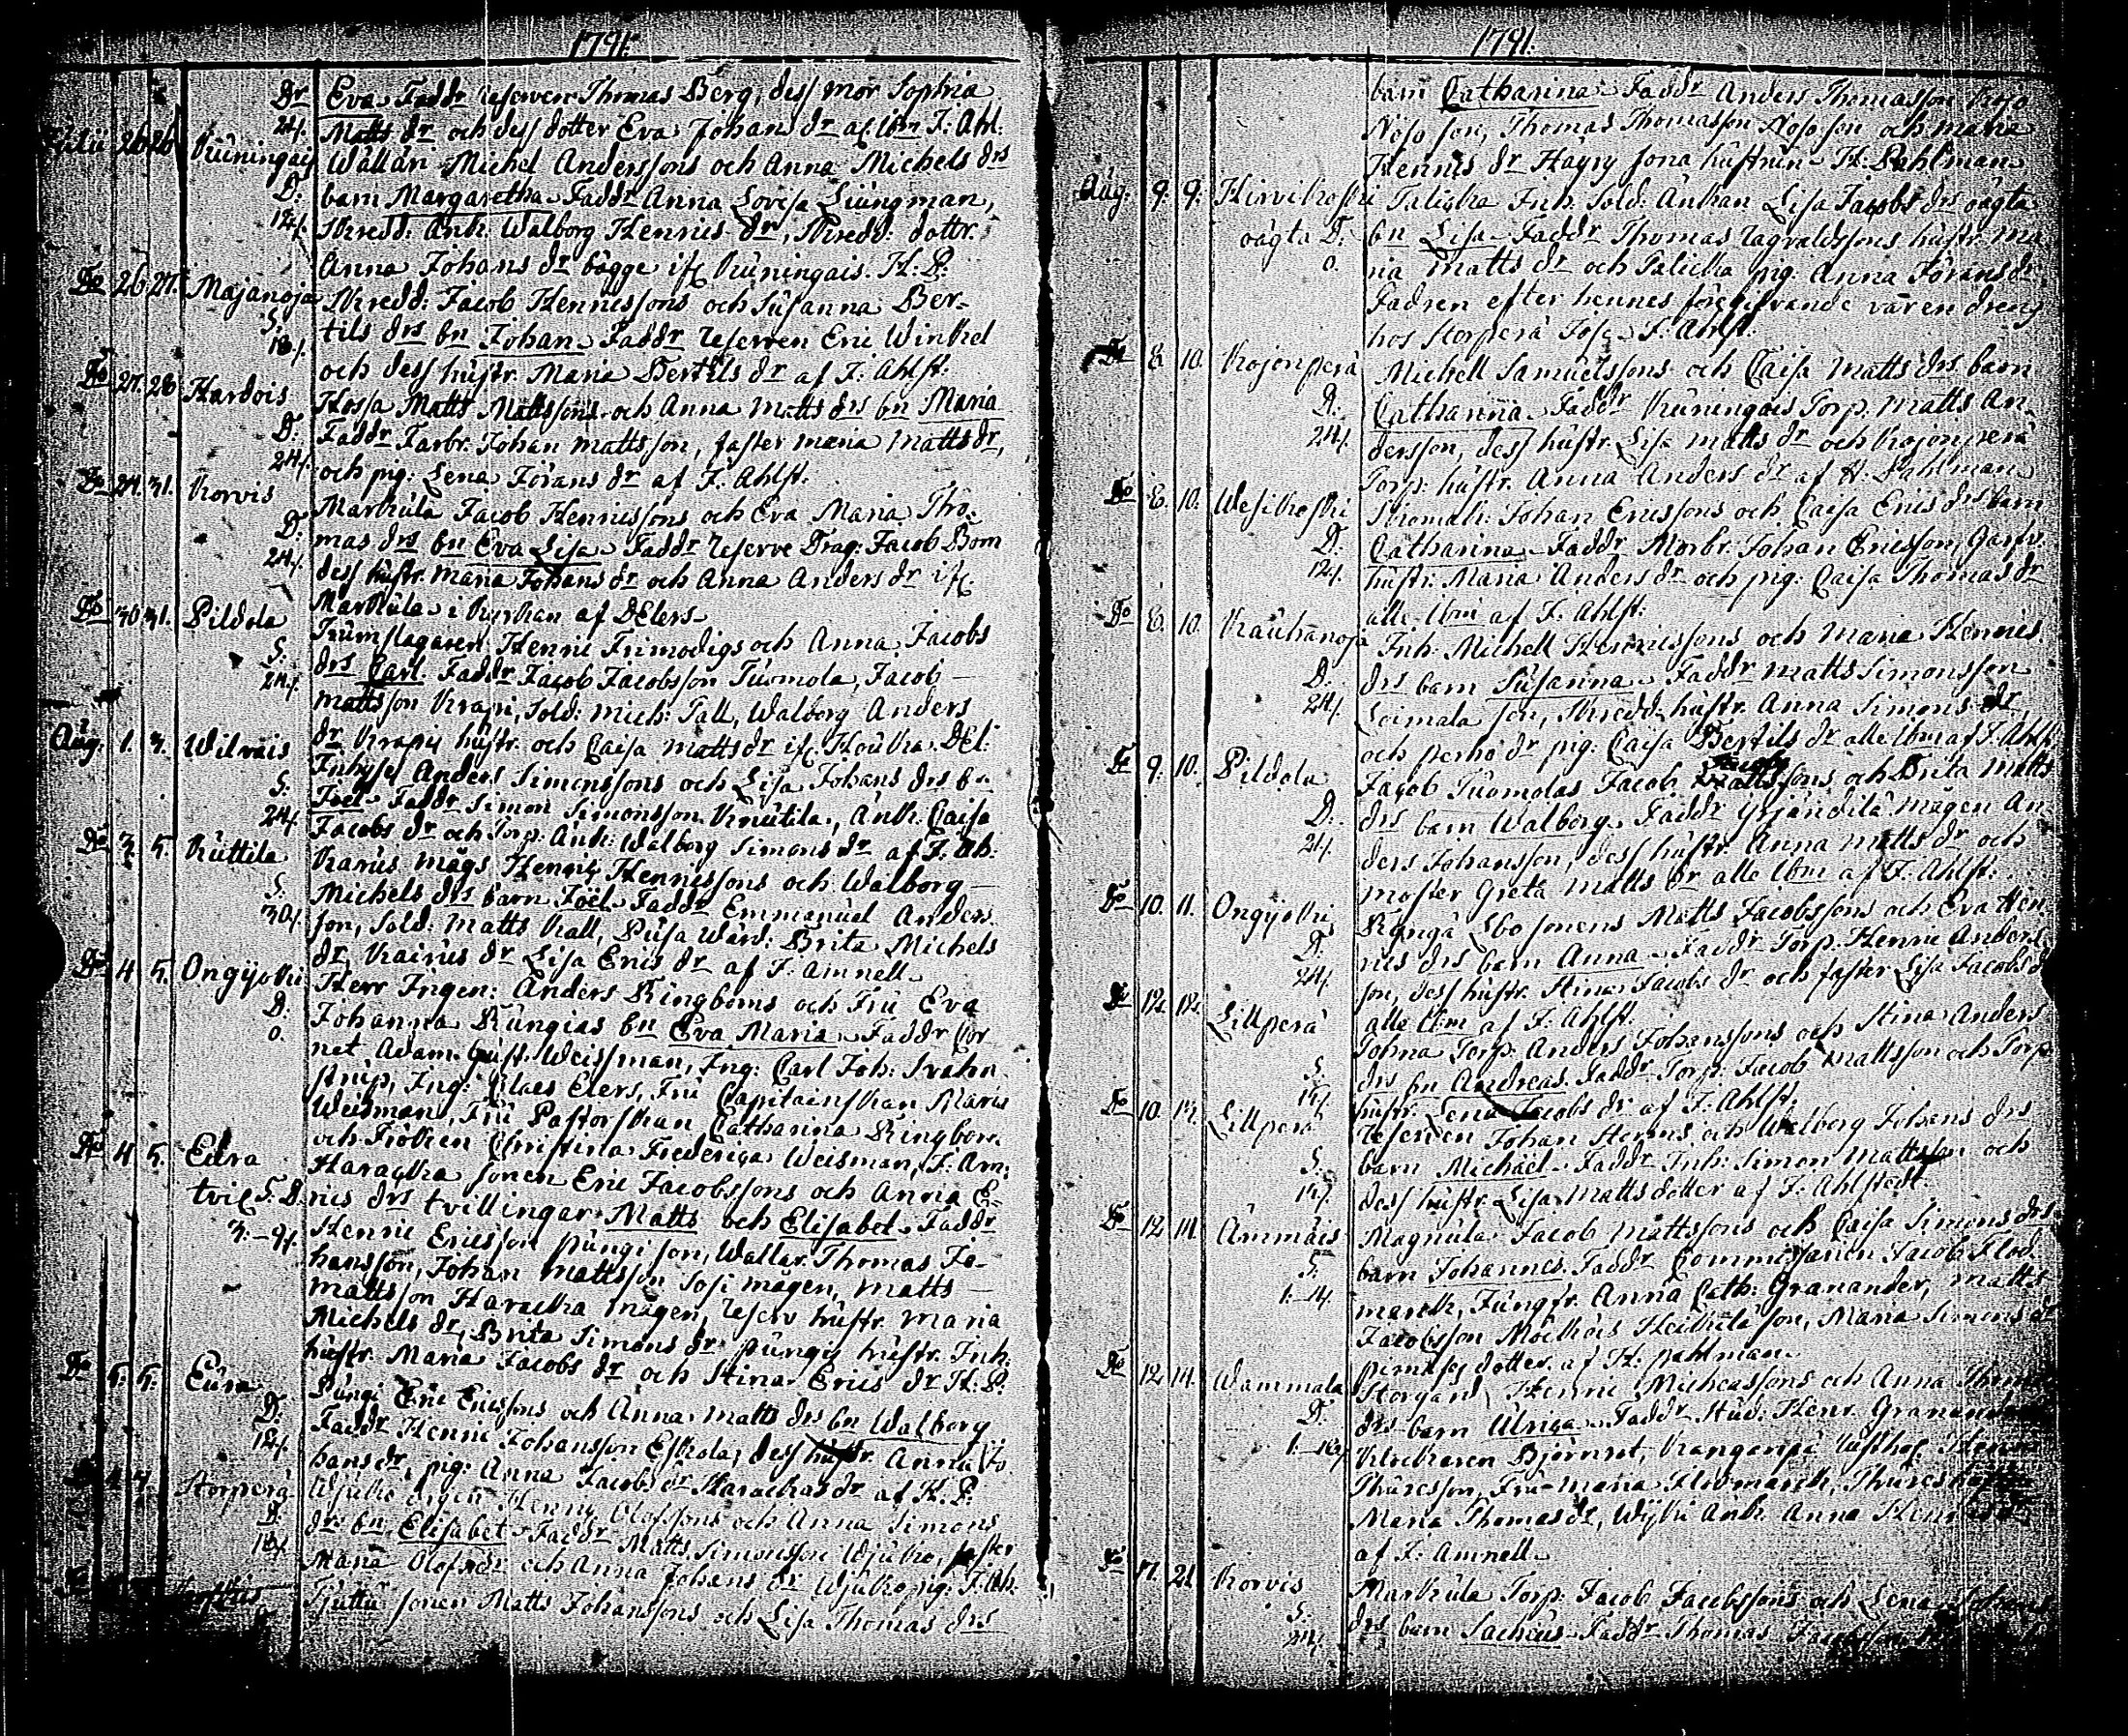 1791.
Dr Eva. Faddr Reserven Thomas Berg, dess mor Sophia
24. Matts dr och dess dotter Eva Johans dr af lbm J: Ahl:
Julii 26 26 Kuningais Wallari Michel Anderssons och Anna Michels drs
D: barn Margaretha Faddr Anna Lovisa Liungman,
12. Skredd: Enk. Walborg Hennis dr, Skredd: dottr.
Anna Johans dr bägge ifr Kuningais. H: P:
Do 26 27. Majanoja Skredd: Jacob Hennissons och Susanna Ber-
S: tils drs bn Johan. Faddr Reserven Eric Winkel
18. och dess hustr. Maria Bertils dr af J: Ahlst.
Do 27. 28 Hardois Hossa Matts Mattssons och Anna Matts drs bn Maria
D: Faddr Farbr. Johan Mattsson, faster Maria Matts dr,
24. och pig: Lena Jörans dr af J: Ahlst.
Do 29. 31. Korvis Markula Jacob Hennissons och Eva Maria Tho-
D: mas drs bn Eva Lisa. Faddr Reserve Drag: Jacob Bom
24. dess hustr. Maria Johans dr och Anna Anders dr ifr
Markula i Kurkan af DElers.
Do 30 31. Pildola Trumslagaren Henric Frimodigs och Anna Jacobs
S: drs Carl. Faddr Jacob Jacobsson Tuomola, Jacob
24. Mattsson Krapi, Sold: Mich: Tall, Walborg Anders
dr Krapis hustr. och Caisa Matts dr ifr Houkka. DEl:
Aug. 1. 3. Wilvais Inhyses Anders Simonssons och Lisa Johans drs bn
S: Joel. Faddr Simon Simonsson Knutila, Enk. Caisa
24. Jacobs dr och Torp: Enk: Walborg Simons dr af J: Ah:
Do 3. 5. Kuttila Karus mågs Henric Hennissons och Walborg
S. Michels drs barn Joël. Faddr Emmanuel Anders
30. son, Sold: Matts Kall, Pusa Wärd: Brita Michels
dr Kairus dr Lisa Erics dr af J: Amnell.
Do 4 5. Ongijoki Herr Ingen: Anders Ringboms och Fru Eva
D: Johanna Rungias bn Eva Maria. Faddr Cor
0. net Adam Gust. Weissman, Ing: Carl Joh: Svahn
strup, Ing: Claes Elers, Fru Capitainskan Maria
Weisman, Fru Pastorskan Catharina Ringbom
och Fröken Christina Frederica Weisman, J: Am:
Do 4 5. Eura Haracka sonen Eric Jacobssons och Anna E-
tvil S. D. rics drs tvillingar Matts och Elisabet. Faddr
3.–9. Henric Ericsson Pungi son, Wallar. Thomas Jo-
hansson, Johan Mattsson Sosi mågen, Matts
Mattsson Haracka mågen, Reserv hustr. Maria
Michels dr, Brita Simons dr Pungis hustr. Inh:
hustr. Maria Jacobs dr och Stina Erics dr H: P.
Do 5. 5. Eura Pungi Eric Ericssons och Anna Matts drs bn Walborg
D: Faddr Henric Johansson Eskola, dess hustr. Anna Jo
12. hans dr, pig: Anna Jacobs dr Harackas dr af H: P:
Storperä Henric Olofssons och Anna Simons
D. dr: bn Elisabet. Faddr Matts Simonsson faster
18. Maria Olofs dr och Anna Johans dr pig: J: Ah:
Tjuttu sonen Matts Johanssons och Lisa Thomas drs
1791.
barn Catharina. Faddr Anders Thomasson Kojo
Noso son, Thomas Thomasson Noso son och Maria
Hennis dr Häyry sona hustrun H: Pahlman
Aug. 9. 9. Kirvikoski Talicka Inh. Sold: Enkan Lisa Jacobs drs oägta
oägta D: bn Lisa. Faddr Thomas Ragvaldssons hustr. Ma
0. ria Matts dr och Talicka pig: Anna Jörans dr
Fadren efter hennes föregifvande var en dreng
hos Storperä J: Ahlst.
Do 8. 10. Kojonperä Michell Samuelssons och Caisa Matts drs barn
D. Catharina. Faddr Kuningais Torp: Matts An-
24. dersson, dess hustr. Lisa Matts dr och Kojonperä
Torp: hustr. Anna Anders dr af H: Pahlman
Do 8. 10. Wesikoski Skomak: Johan Ericssons och Caisa Erics drs barn
D. Catharina. Faddr Morbr: Johan Ericsson, Garfv.
12. hustr. Maria Anders dr och pig: Caisa Thomas dr
alle lbm af J: Ahlst:
Do 8. 10. Kauhanoja Inh. Michell Hennissons och Maria Hennis
D. drs barn Susanna. Faddr Matts Simonsson
24. Loimala son, Skredd: hustr. Anna Simons dr
och Perho dr pig: Caisa Bertils dr alle lbm af J: Ahlst.
Do 9. 10. Pildola Jacob Tuomolas Jacob Jacobssons och Brita Matts
D. drs barn Walborg. Faddr Yrjändilä mågen An
24. ders Johansson, dess hustr. Anna Matts dr och
moster Greta Matts dr alle lbm af J: Ahlst:
Do 10. 11. Ongijoki sonens Matts Jacobssons och Eva Hen
D. nis drs barn Anna. Faddr Torp. Henric Anders
24. son, dess hustr. Stina Jacobs dr och faster Lisa Jacobs d
alle lbm af J: Ahlst.
Do 12. 12. Lillperä Torp: Anders Johanssons och Stina Anders
S. drs bn Andreas. Faddr Torp: Jacob Mattsson och Torp
hustr. Lena Jacobs dr af J: Ahlst.
Do 10. 14. Lillperä Reserven Johan och Walborg Johans drs
S. barn Michäel. Faddr Inh: Simon Mattsson och
dess hustr. Lisa Matts dotter af J: Ahlstedt.
Do 12 14 Ämmäis Magnula Jacob Mattssons och Caisa Simons drs
S. barn Johannes. Faddr Commissarien Jacob Flod
marck, Jungfr. Anna Cath: Granander, Matts
Jacobsson Heikkilä son, Maria Simons dr
dotter af H: Pahlman.
Do 12 14. Wammala Storgård Henric Michelssons och Anna
D. drs barn Ulrica. Faddr Stud: Henr. Granander
Klockaren Björnrot,
Thuresson, Fru Maria Flodmarck, Thures
Maria Thomas dr, Enk. Anna
af J: Amnell.
Do 17. 21. Korvis Markula Torp: Jacob Jacobssons och Lena Johans
S: drs barn Sacheus. Faddr Thomas
24.